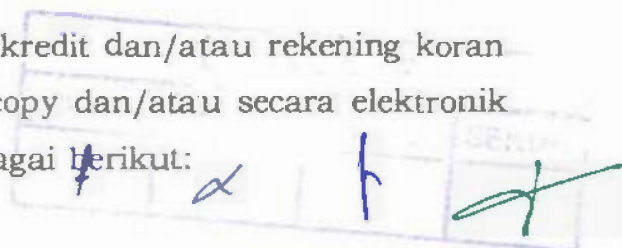 kredit dan/atau rekening koran
copy dan/atau secara elektronik
agai berikut: